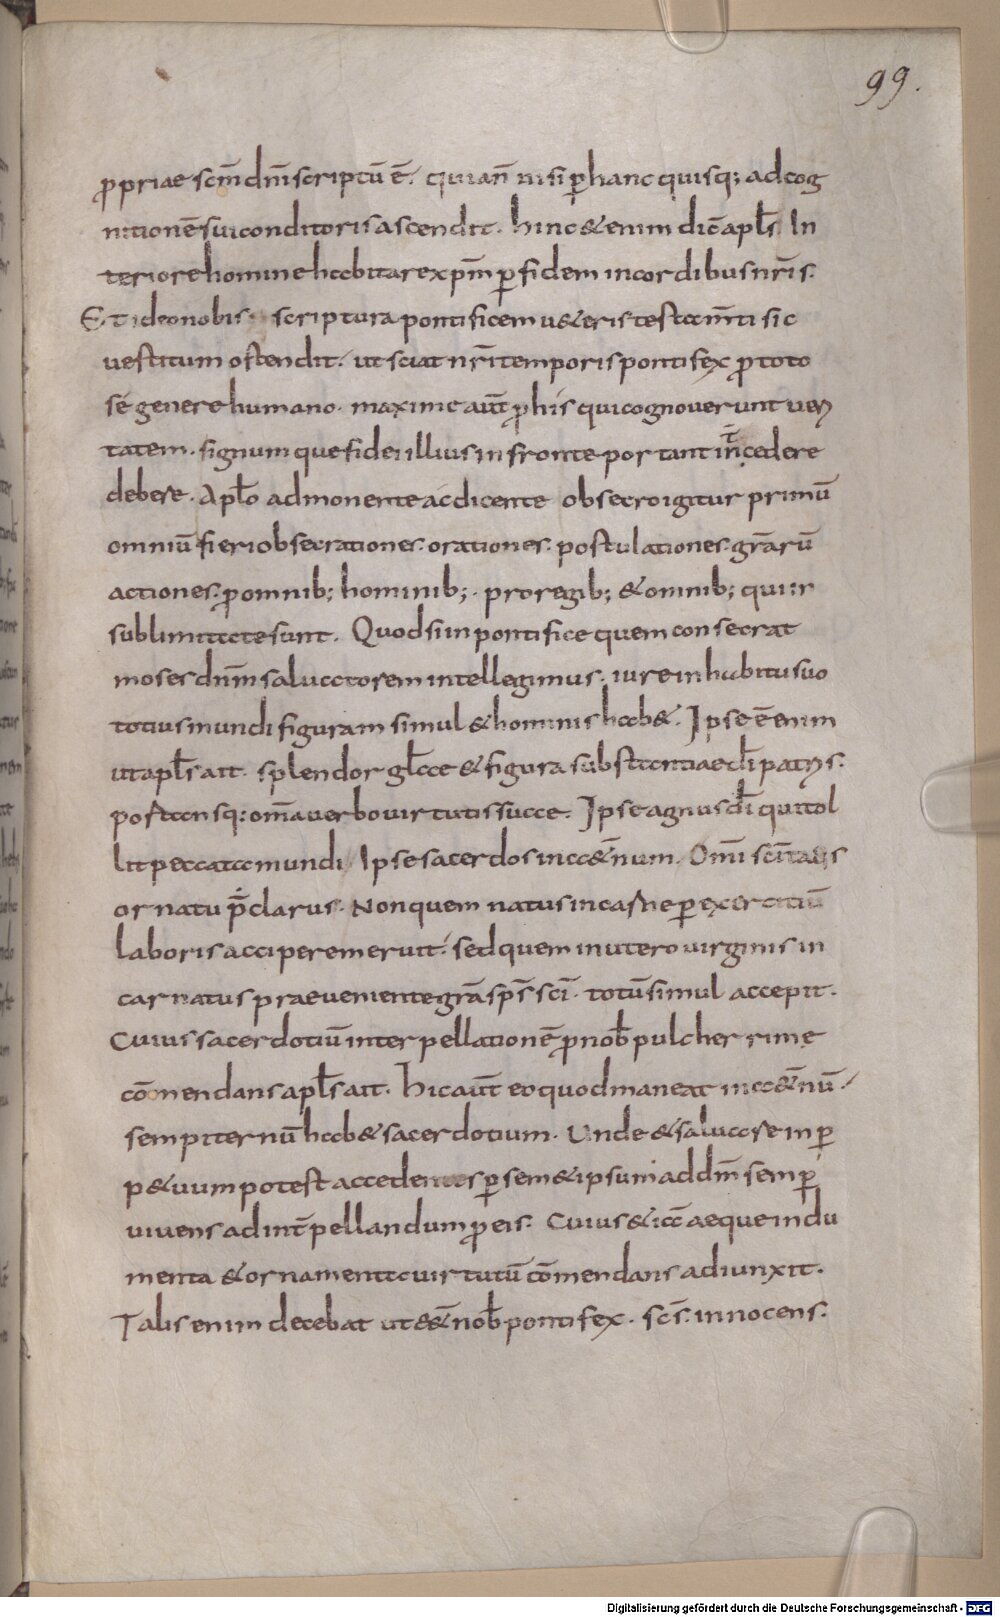 99.
ꝓpriae scm̄ dnm̄ scriptū ē. quian̄ nisi ꝑ hanc quisq; ad cog
nitionē sui conditoris ascendit. hinc & enim dic̄ apl̄s In
teriore homine habitare xpm̄ ꝑ fidem in cordibus nr̄is.
Et ideo nobis scriptura pontificem u&eris testam̄ti sic
uestitum ostendit. ut sciat nr̄i temporis pontifex ꝓ toto
sé genere humano. maxime aut̄ ꝓ his qui cognouerunt ueri
tatem. signum que fidei illius in fronte portant int̄cedere
debere. Apl̄o admonente ac dicente obsecro igitur primū
omniū fieri obsecrationes. orationes. postulationes. gr̄arū
actiones. ꝓ omnib; hominib;. pro regib; & omnib; qui in
sublimitate sunt. Quod si in pontifice quem consecrat
moses dnm̄ saluatorem intellegimus. iure in habitu suo
totius mundi figuram simul & hominis hab&. Ipse ē enim
ut apl̄s ait. splendor gl̄ae & figura substantiae dī patris.
portansq; om̄a uerbo uirtutis suae. Ipse agnus dī qui tol
lit peccata mundi Ipse sacerdos in a&̄num. Om̄i sc̄itatis
ornatu p̄clarus. Non quem natus in carne ꝑ exercitiū
laboris accipere meruit. sed quem in utero uirginis in
carnatus praeueniente gr̄a sp̄s sc̄i. totū simul accepit.
Cuius sacerdotiū interpellationē ꝓ nob̄ pulcherrime
cōmendans apl̄s ait. hic aut̄ eo quod maneat in a&̄nū.
sempiternū hab& sacerdotium. Unde & saluare in ꝑ
p&uum potest accedentes ꝑ sem&ipsum ad dm̄ semꝑ
uiuens ad int̄pellandum ꝓ eis. Cuius & ia aeque indu
menta & ornamenta uirtutū cōmendans adiunxit.
Talis enim decebat ut ē& nob̄ pontifex. sc̄s. innocens.
Digitalisierung gefördert durch die Deutsche Forschungsgemeinschaft - DFG